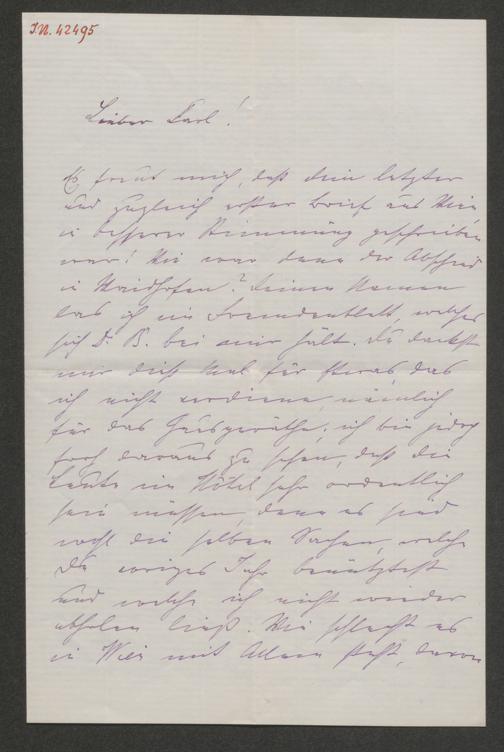 I.N. 42495
Lieber Karl!
Es freut mich, daß dein letzter
und zugleich erster Brief aus Wien
in besserer Stimmung geschrieben
war! Wie war denn der Abschied
in Waidhofen? Deinen Namen
las ich im Fremdenblatt, welches
sich D. B. bei mir hält. Du dankst
mir dieß Mal für Etwas, das
ich nicht verdiene, nämlich
für das Hausgeräthe; ich bin jedoch
froh daraus zu sehen, daß die
Leute im Hôtel sehr ordentlich
sein müssen, denn es sind
wohl die selben Sachen, welche
Du voriges Jahr benütztest
und welche ich nicht wieder
abholen ließ. Wie schlecht es
in Wien mit Allem steht, davon